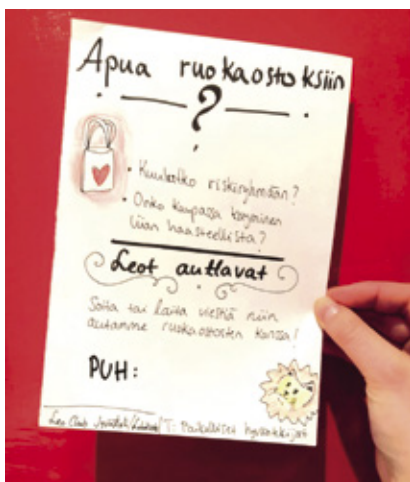 Apua ruokaostoksiin
?
• Kuulutko riskiryhmään?
• Onko kaupassa käyminen
liian haasteellista?
Leot auttavat
Soita tai laita viestiä niin
autamme ruokaostosten kanssa!
PUH:
Leo Club T: Paikalliset hyväntekijät